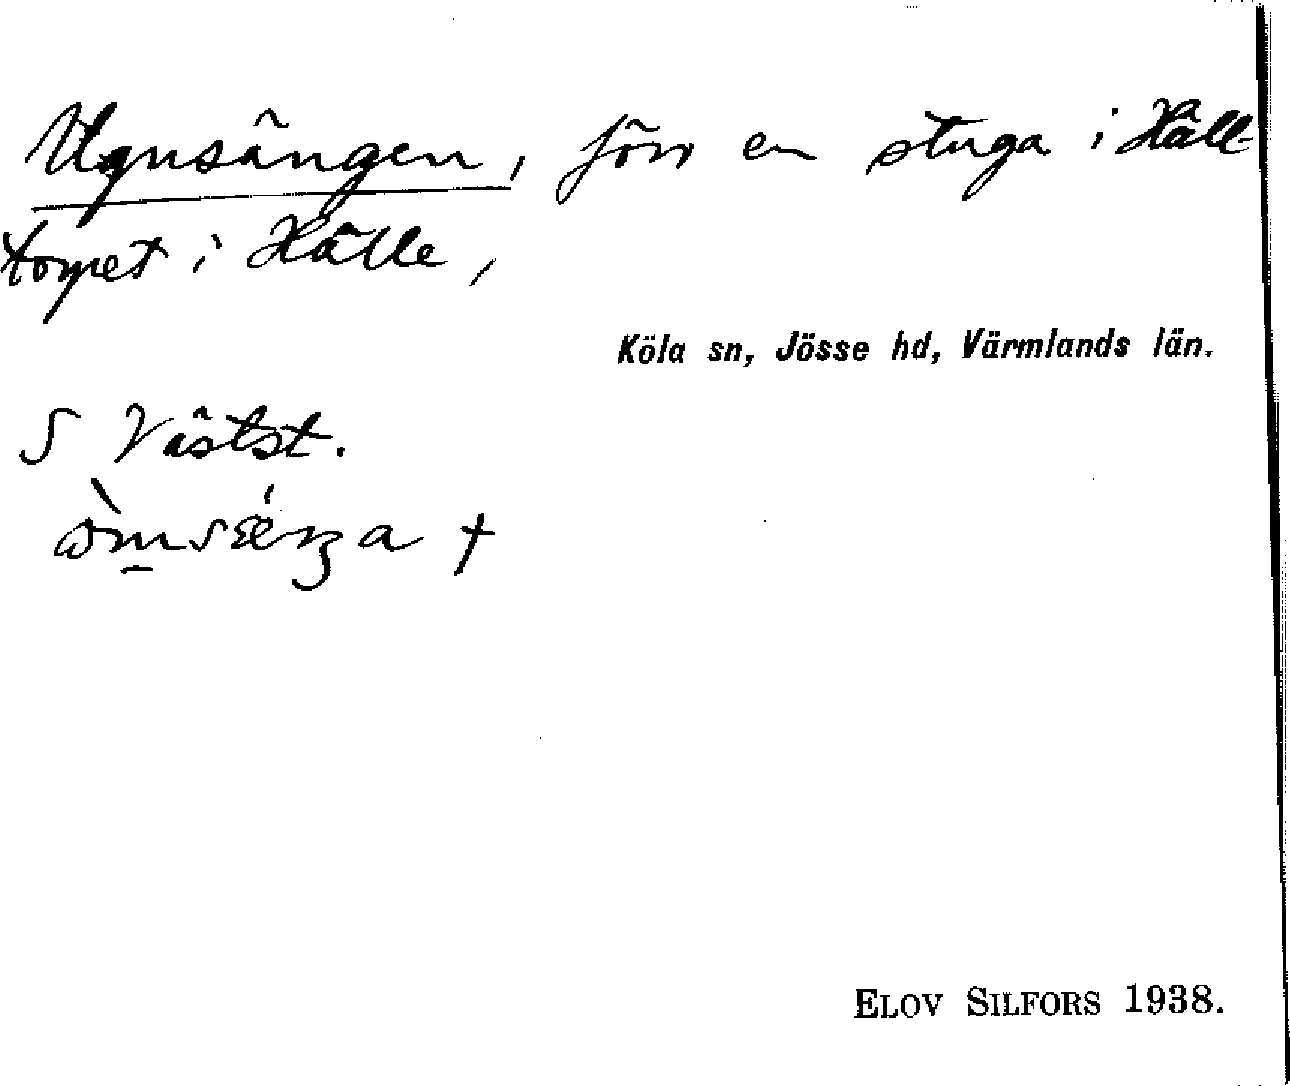 Ugnsängen, förr en stuga i Häll-
torpet i Hälle,
Köla sn, Jösse hd, Värmlands län.
S Västst.
ELOV SILFORS 1938.